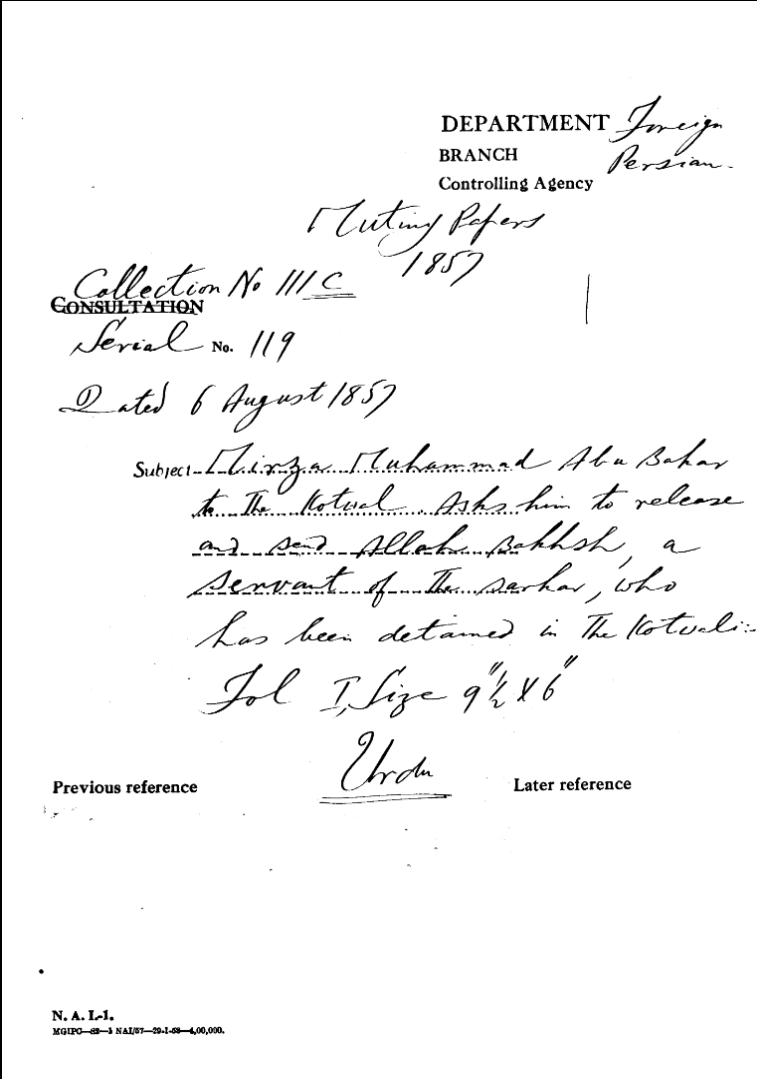 DEPARTMENT Foreign
BRANCH Persian.
Controlling Agency
Mutiny Papers
1857
Collection No 111 C
CONSULTATION
Serial No. 119
Dated 6 August 1857
Subject Mirza Muhammad Abu Bakar
to The Kotwal Asks him to release
and send Allah Bakhsh, a
servant of The sarkar, who
has been detained in The Kotwali:-
Fol I, Size 9"½ X 6"
Urdu
Previous reference Later reference
N. A. I.-1.
MGIPC—82—1 NAI/57—29-1-58—4,00,000.